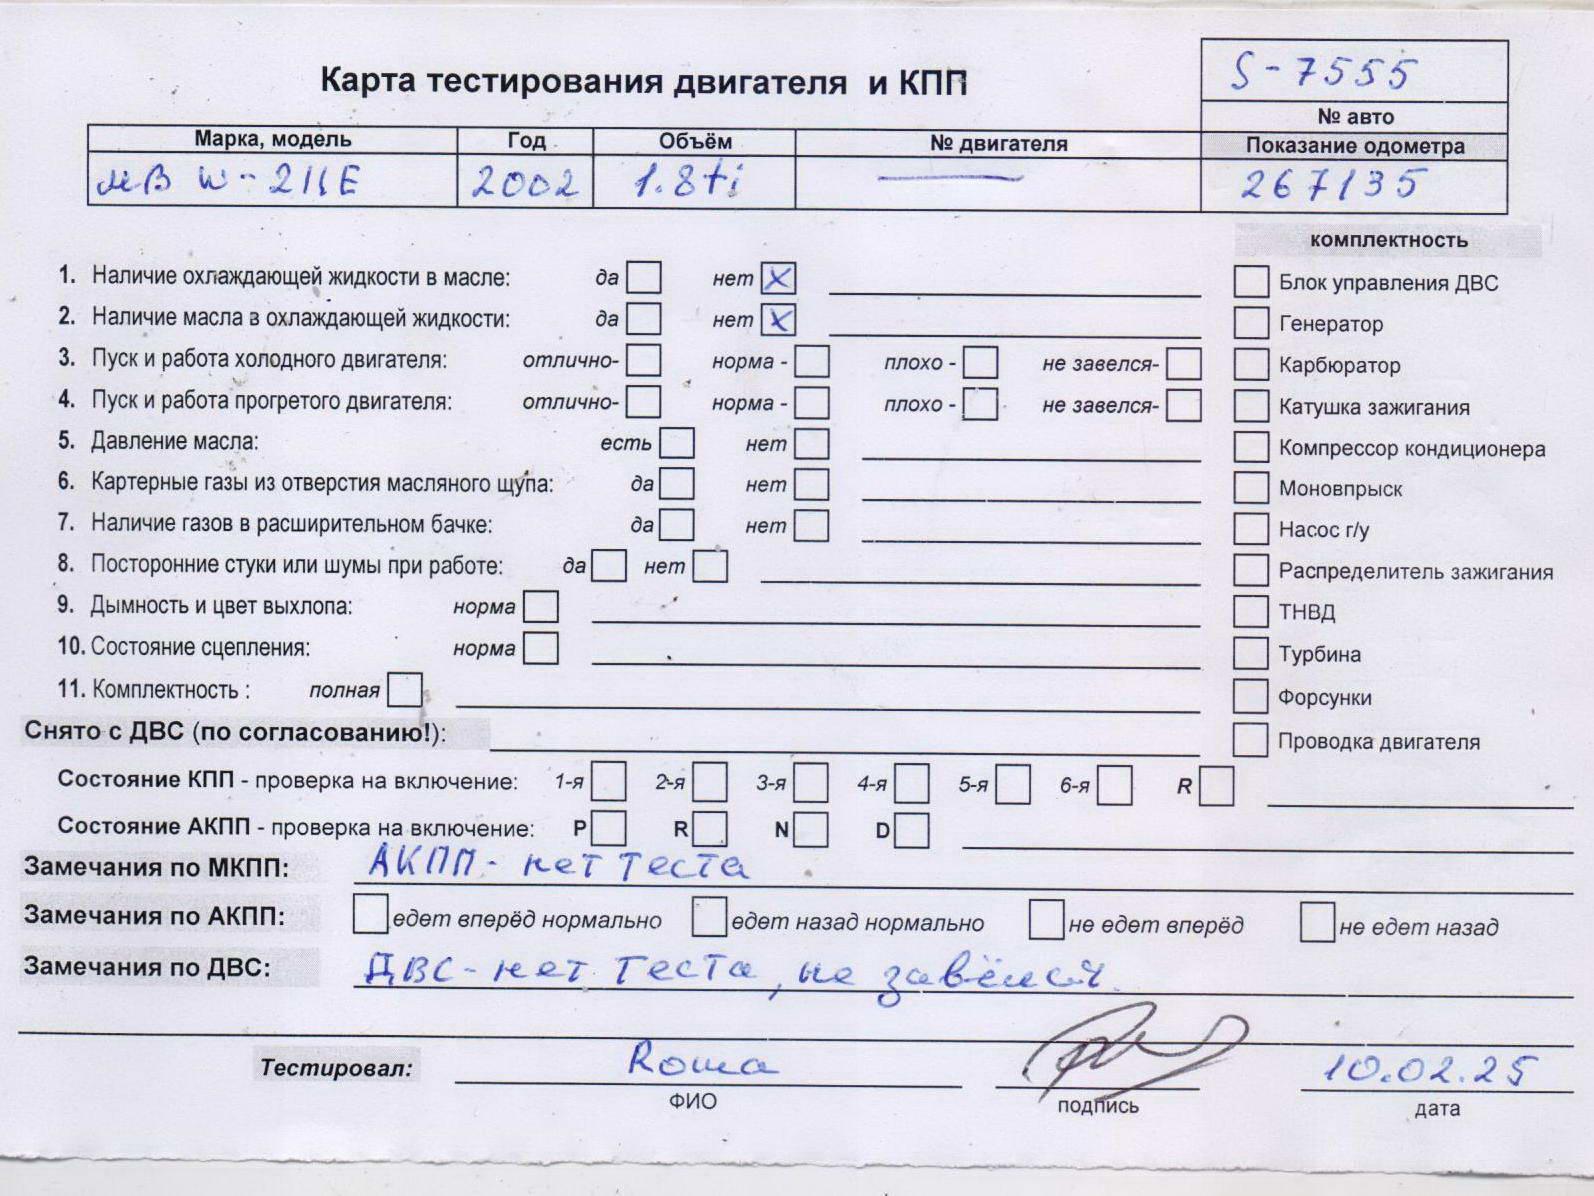 S-7555
Карта тестирования двигателя и КПП
№ авто
Марка, модель Год Объём № двигателя Показание одометра
МВ W-211Е 2002 1.8ti — 267135
комплектность
1. Наличие охлаждающей жидкости в масле: да нет X Блок управления ДВС
2. Наличие масла в охлаждающей жидкости: да нет X Генератор
3. Пуск и работа холодного двигателя: отлично- норма - плохо - не завелся- Карбюратор
4. Пуск и работа прогретого двигателя: отлично- норма - плохо - не завелся- Катушка зажигания
5. Давление масла: есть нет Компрессор кондиционера
6. Картерные газы из отверстия масляного щупа: да нет Моновпрыск
7. Наличие газов в расширительном бачке: да нет Насос г/у
8. Посторонние стуки или шумы при работе: да нет Распределитель зажигания
9. Дымность и цвет выхлопа: норма ТНВД
10. Состояние сцепления: норма Турбина
11. Комплектность : полная Форсунки
Снято с ДВС (по согласованию!): Проводка двигателя
Состояние КПП - проверка на включение: 1-я 2-я 3-я 4-я 5-я 6-я R
Состояние АКПП - проверка на включение: P R N D
Замечания по МКПП: АКПП - нет теста
Замечания по АКПП: едет вперёд нормально едет назад нормально не едет вперёд не едет назад
Замечания по ДВС: ДВС - нет теста, не завёлся.
Тестировал: Рома 10.02.25
ФИО подпись дата